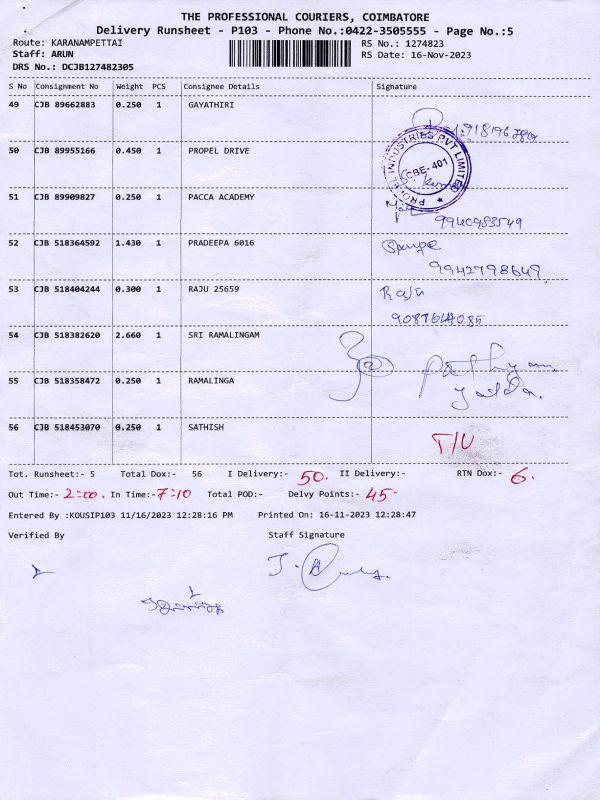 THE PROFESSIONAL COURIERS, COIMBATORE
Delivery Runsheet - P103 - Phone No.:0422-3505555 - Page No.:5
Route: KARANAMPETTAI RS No.: 1274823
Staff: ARUN RS Date: 16-Nov-2023
DRS No.: DCJB127482305
S No Consignment No Weight PCS Consignee Details Signature
49 CJB 89662883 0.250 1 GAYATHIRI
50 CJB 89955166 0.450 1 PROPEL DRIVE
PROPEL INDUSTRIES PVT LIMITED
CBE-401
51 CJB 89909827 0.250 1 PACCA ACADEMY
9940983549
52 CJB 518364592 1.430 1 PRADEEPA 6016
9942798649
53 CJB 518404244 0.300 1 RAJU 25659 Raju
54 CJB 518382620 2.660 1 SRI RAMALINGAM
55 CJB 518358472 0.250 1 RAMALINGA
56 CJB 518453070 0.250 1 SATHISH T/U
Tot. Runsheet:- 5 Total Dox:- 56 I Delivery:- 50. II Delivery:- RTN Dox:- 6.
Out Time:- 2:00. In Time:- 7:10 Total POD:- Delvy Points:- 45-
Entered By :KOUSIP103 11/16/2023 12:28:16 PM Printed On: 16-11-2023 12:28:47
Verified By Staff Signature